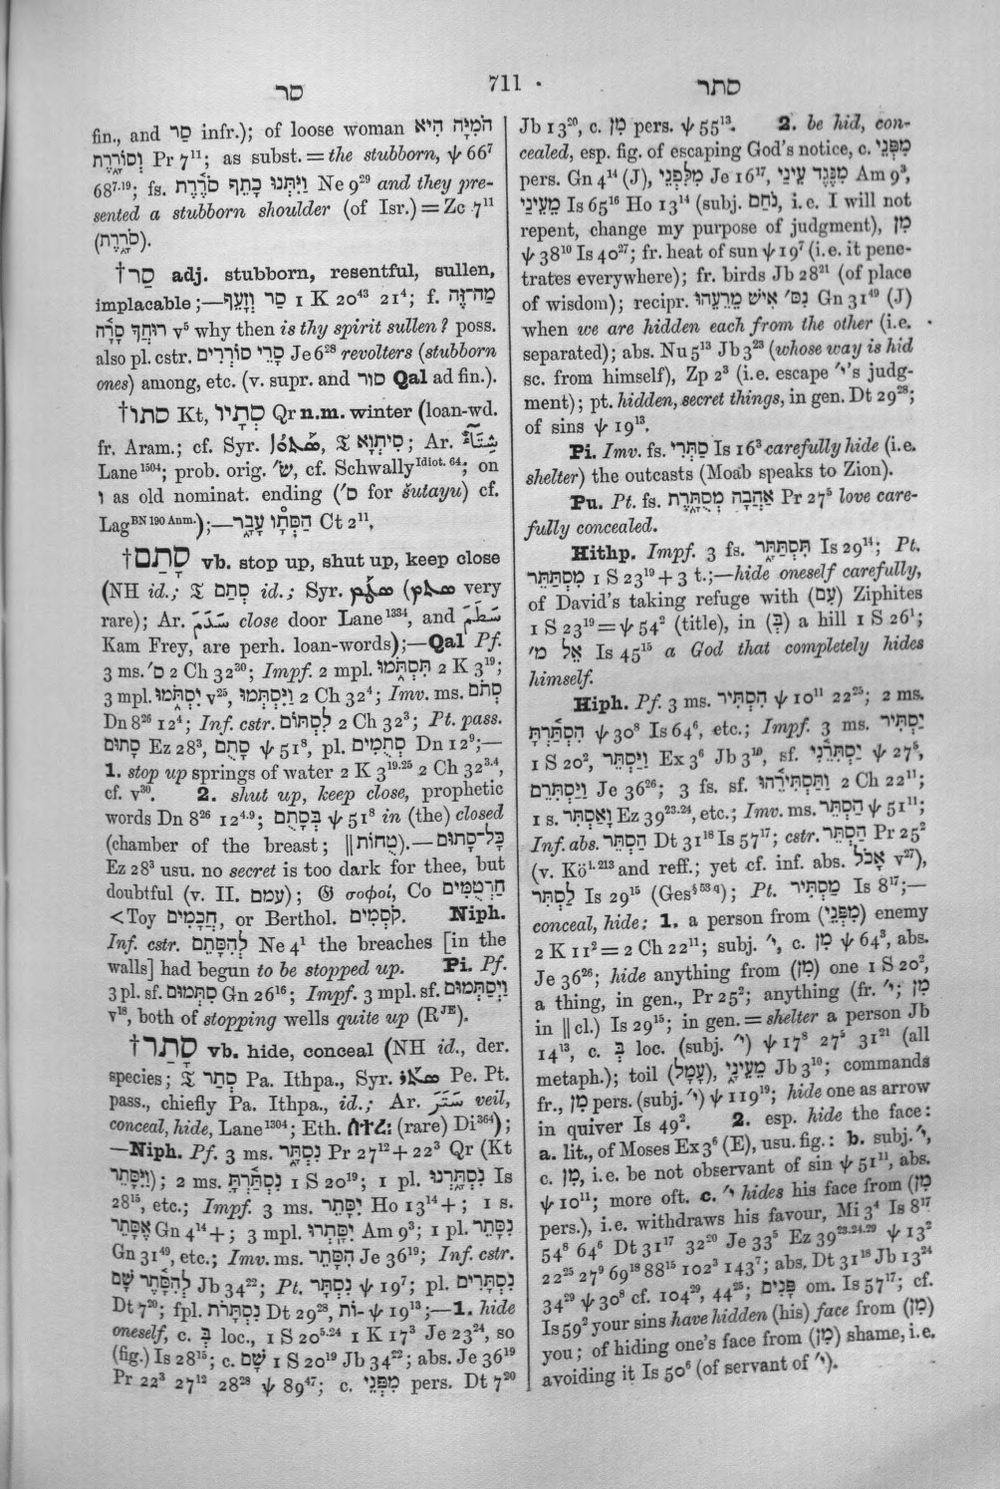 סר
711
סתר
fin., and סַר infr.); of loose woman הֹמִיָּה הִיא
וְסוֹרֶרֶת Pr 7¹¹; as subst. = the stubborn, ψ 66⁷
68⁷·¹⁹; fs. וַיִּתְּנוּ כָתֵף סֹרֶרֶת Ne 9²⁹ and they pre-
sented a stubborn shoulder (of Isr.) = Zc 7¹¹
(סֹרָרֶת).
†סַר adj. stubborn, resentful, sullen,
implacable;—סַר וְזָעֵף 1 K 20⁴³ 21⁴; f. מַה־זֶּה
רוּחֲךָ סָרָה v⁵ why then is thy spirit sullen? poss.
also pl. cstr. סָרֵי סוֹרְרִים Je 6²⁸ revolters (stubborn
ones) among, etc. (v. supr. and סור Qal ad fin.).
†סתו Kt, סְתָיו Qr n.m. winter (loan-wd.
fr. Aram.; cf. Syr. ܣܬܘܐ, 𝔗 סִיתְוָא; Ar. شِتَآءٌ
Lane¹⁵⁰⁴; prob. orig. שׂ׳, cf. Schwally Idiot. 64; on
ו as old nominat. ending (ס׳ for šutayu) cf.
Lag BN 190 Anm.);—הַסְּתָו עָבָר Ct 2¹¹.
†סָתַם vb. stop up, shut up, keep close
(NH id.; 𝔗 סְתַם id.; Syr. ܣܬܡ (ܣܛܡ very
rare); Ar. سَدَّمَ close door Lane¹³³⁴, and سَطَمَ
Kam Frey, are perh. loan-words);—Qal Pf.
3 ms. ס׳ 2 Ch 32³⁰; Impf. 2 mpl. תִּסְתֹּמוּ 2 K 3¹⁹;
3 mpl. יִסְתֹּמוּ v²⁵, וַיִּסְתְּמוּ 2 Ch 32⁴; Imv. ms. סְתֹם
Dn 8²⁶ 12⁴; Inf. cstr. לִסְתּוֹם 2 Ch 32³; Pt. pass.
סָתוּם Ez 28³, סָתֻם ψ 51⁸, pl. סְתֻמִים Dn 12⁹;—
1. stop up springs of water 2 K 3¹⁹·²⁵ 2 Ch 32³·⁴,
cf. v³⁰. 2. shut up, keep close, prophetic
words Dn 8²⁶ 12⁴·⁹; בְּסָתֻם ψ 51⁸ in (the) closed
(chamber of the breast; ‖ טֻחוֹת).—כָּל־סָתוּם
Ez 28³ usu. no secret is too dark for thee, but
doubtful (v. II. עמם); 𝔊 σοφοί, Co חַרְטֻמִּים
<Toy חֲכָמִים, or Berthol. קֹסְמִים. Niph.
Inf. cstr. לְהִסָּתֵם Ne 4¹ the breaches [in the
walls] had begun to be stopped up. Pi. Pf.
3 pl. sf. סִתְּמוּם Gn 26¹⁵; Impf. 3 mpl. sf. וַיְסַתְּמוּם
v¹⁸, both of stopping wells quite up (Rᴶᴱ).
†סָתַר vb. hide, conceal (NH id., der.
species; 𝔗 סְתַר Pa. Ithpa., Syr. ܣܬܪ Pe. Pt.
pass., chiefly Pa. Ithpa., id.; Ar. سَتَرَ veil,
conceal, hide, Lane¹³⁰⁴; Eth. ሰተረ: (rare) Di³⁶⁴);
—Niph. Pf. 3 ms. נִסְתָּר Pr 27¹² + 22³ Qr (Kt
וְיִסָּתֵר); 2 ms. נִסְתַּרְתָּ 1 S 20¹⁹; 1 pl. נִסְתָּרְנוּ Is
28¹⁵, etc.; Impf. 3 ms. יִסָּתֵר Ho 13¹⁴ +; 1 s.
אֶסָּתֵר Gn 4¹⁴ +; 3 mpl. יִסָּתְרוּ Am 9³; 1 pl. נִסָּתֵר
Gn 31⁴⁹, etc.; Imv. ms. הִסָּתֵר Je 36¹⁹; Inf. cstr.
לְהִסָּתֶר שָׁם Jb 34²²; Pt. נִסְתָּר ψ 19⁷; pl. נִסְתָּרִים
Dt 7²⁰; fpl. נִסְתָּרֹת Dt 29²⁸, ־וֹת ψ 19¹³;—1. hide
oneself, c. בְּ loc., 1 S 20⁵·²⁴ 1 K 17³ Je 23²⁴, so
(fig.) Is 28¹⁵; c. שָׁם 1 S 20¹⁹ Jb 34²²; abs. Je 36¹⁹
Pr 22³ 27¹² 28²⁸ ψ 89⁴⁷; c. מִפְּנֵי pers. Dt 7²⁰
Jb 13²⁰, c. מִן pers. ψ 55¹³. 2. be hid, con-
cealed, esp. fig. of escaping God's notice, c. מִפְּנֵי
pers. Gn 4¹⁴ (J), מִלִּפְנֵי Je 16¹⁷, מִנֶּגֶד עֵינַי Am 9³,
מֵעֵינַי Is 65¹⁶ Ho 13¹⁴ (subj. נֹחַם, i.e. I will not
repent, change my purpose of judgment), מִן
ψ 38¹⁰ Is 40²⁷; fr. heat of sun ψ 19⁷ (i.e. it pene-
trates everywhere); fr. birds Jb 28²¹ (of place
of wisdom); recipr. נִסּ׳ אִישׁ מֵרֵעֵהוּ Gn 31⁴⁹ (J)
when we are hidden each from the other (i.e.
separated); abs. Nu 5¹³ Jb 3²³ (whose way is hid
sc. from himself), Zp 2³ (i.e. escape י׳'s judg-
ment); pt. hidden, secret things, in gen. Dt 29²⁸;
of sins ψ 19¹³.
Pi. Imv. fs. סַתְּרִי Is 16³ carefully hide (i.e.
shelter) the outcasts (Moab speaks to Zion).
Pu. Pt. fs. אַהֲבָה מְסֻתָּרֶת Pr 27⁵ love care-
fully concealed.
Hithp. Impf. 3 fs. תִּסְתַּתָּר Is 29¹⁴; Pt.
מִסְתַּתֵּר 1 S 23¹⁹ + 3 t.;—hide oneself carefully,
of David's taking refuge with (עִם) Ziphites
1 S 23¹⁹ = ψ 54² (title), in (בְּ) a hill 1 S 26¹;
אֵל מ׳ Is 45¹⁵ a God that completely hides
himself.
Hiph. Pf. 3 ms. הִסְתִּיר ψ 10¹¹ 22²⁵; 2 ms.
הִסְתַּרְתָּ ψ 30⁸ Is 64⁶, etc.; Impf. 3 ms. יַסְתִּיר
1 S 20², וַיַּסְתֵּר Ex 3⁶ Jb 3¹⁰, sf. יַסְתִּרֵנִי ψ 27⁵,
וַיַּסְתִּרֵם Je 36²⁶; 3 fs. sf. וַתַּסְתִּירֵהוּ 2 Ch 22¹¹;
1 s. וָאַסְתִּר Ez 39²³·²⁴, etc.; Imv. ms. הַסְתֵּר ψ 51¹¹;
Inf. abs. הַסְתֵּר Dt 31¹⁸ Is 57¹⁷; cstr. הַסְתֵּר Pr 25²
(v. Kö¹·²¹³ and reff.; yet cf. inf. abs. אָכֹל v²⁷),
לַסְתִּר Is 29¹⁵ (Ges§53q); Pt. מַסְתִּיר Is 8¹⁷;—
conceal, hide: 1. a person from (מִפְּנֵי) enemy
2 K 11² = 2 Ch 22¹¹; subj. י׳, c. מִן ψ 64³, abs.
Je 36²⁶; hide anything from (מִן) one 1 S 20²,
a thing, in gen., Pr 25²; anything (fr. י׳; מִן
in ‖ cl.) Is 29¹⁵; in gen. = shelter a person Jb
14¹³, c. בְּ loc. (subj. י׳) ψ 17⁸ 27⁵ 31²¹ (all
metaph.); toil (עָמָל), מֵעֵינָי Jb 3¹⁰; commands
fr., מִן pers. (subj. י׳) ψ 119¹⁹; hide one as arrow
in quiver Is 49². 2. esp. hide the face:
a. lit., of Moses Ex 3⁶ (E), usu. fig.: b. subj. י׳,
c. מִן, i.e. be not observant of sin ψ 51¹¹, abs.
ψ 10¹¹; more oft. c. י׳ hides his face from (מִן
pers.), i.e. withdraws his favour, Mi 3⁴ Is 8¹⁷
54⁸ 64⁶ Dt 31¹⁷ 32²⁰ Je 33⁵ Ez 39²³·²⁴·²⁹ ψ 13²
22²⁵ 27⁹ 69¹⁸ 88¹⁵ 102³ 143⁷; abs. Dt 31¹⁸ Jb 13²⁴
34²⁹ ψ 30⁸ cf. 104²⁹, 44²⁵; פָּנִים om. Is 57¹⁷; cf.
Is 59² your sins have hidden (his) face from (מִן)
you; of hiding one's face from (מִן) shame, i.e.
avoiding it Is 50⁶ (of servant of י׳).